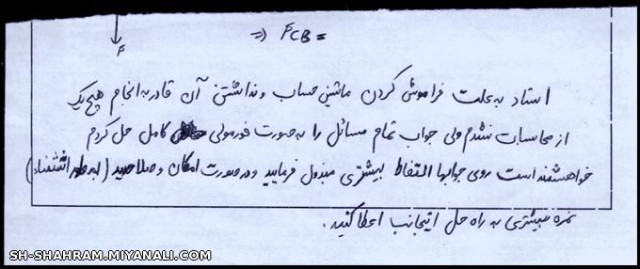 F
=> FCB =
استاد به علت فراموش کردن ماشین حساب و نداشتن آن قادر به انجام هیچ یک
از محاسبات نشدم ولی جواب تمام مسائل را به صورت فورمولی کامل حل کردم
خواهشمند است روی جوابها التفاط بیشتری مبذول فرمایید و در صورت امکان و صلاحدید (به طور اشتثناء)
نمره بیشتری به راه حل اینجانب اعطا کنید.
SH-SHAHRAM.MIYANALI.COM